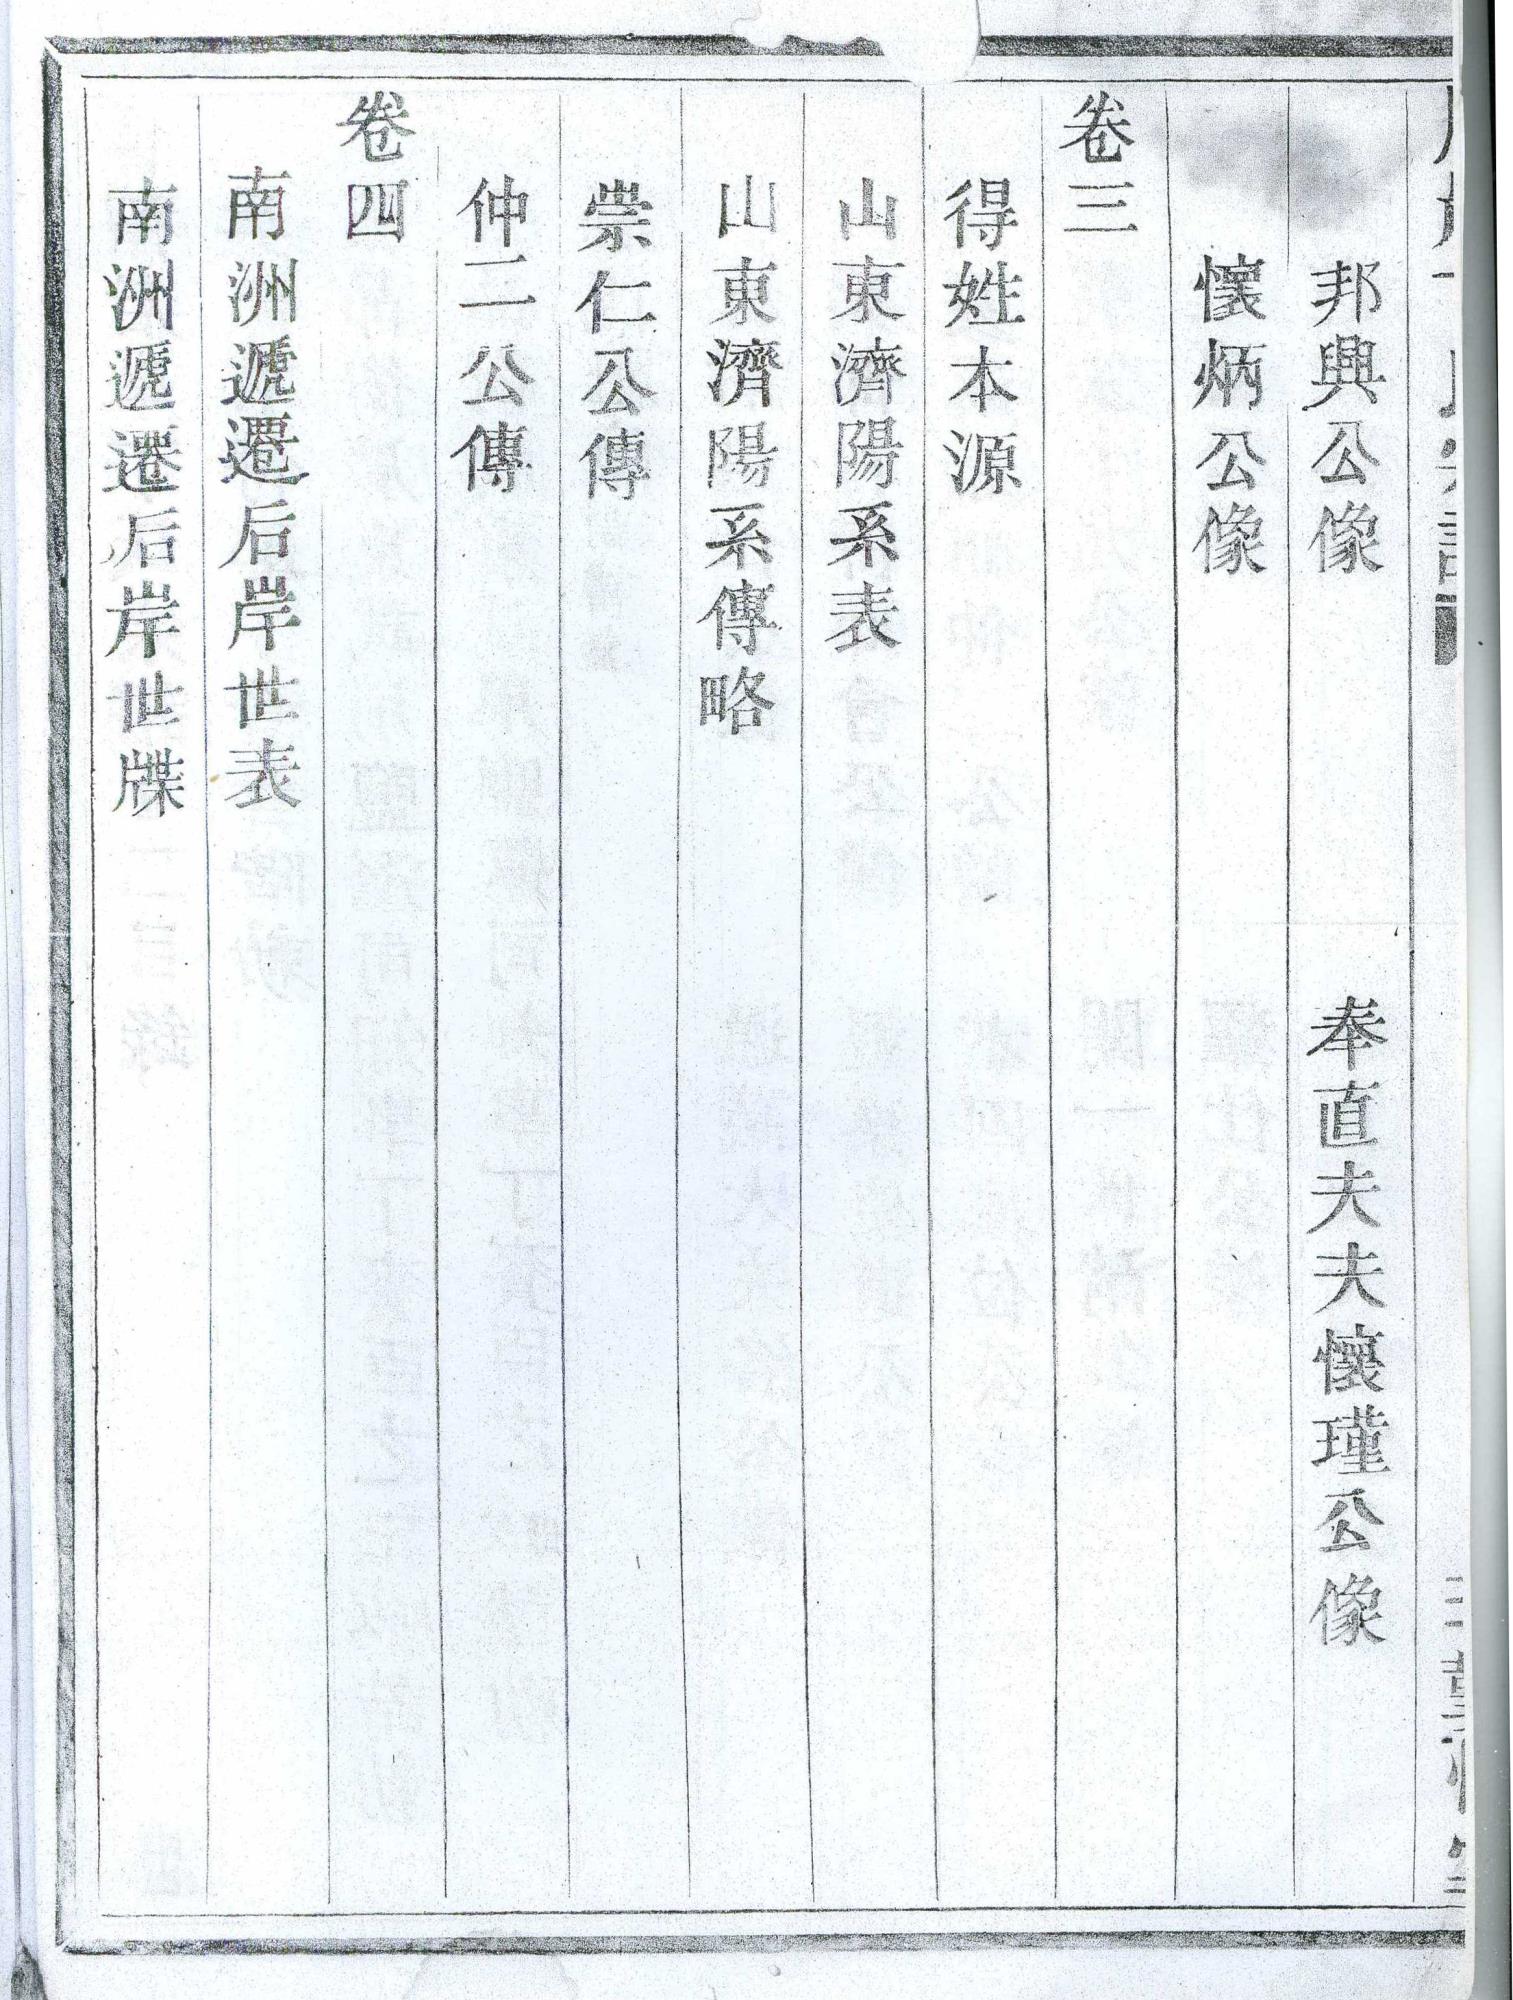 邦興公像
奉直夫夫懷瑾公像
懷炳公像
卷三
得姓本源
山東濟陽系表
山東濟陽系傳略
崇仁公傳
仲二公傳
卷四
南洲遞遷后岸世表
南洲遞遷后岸世牒